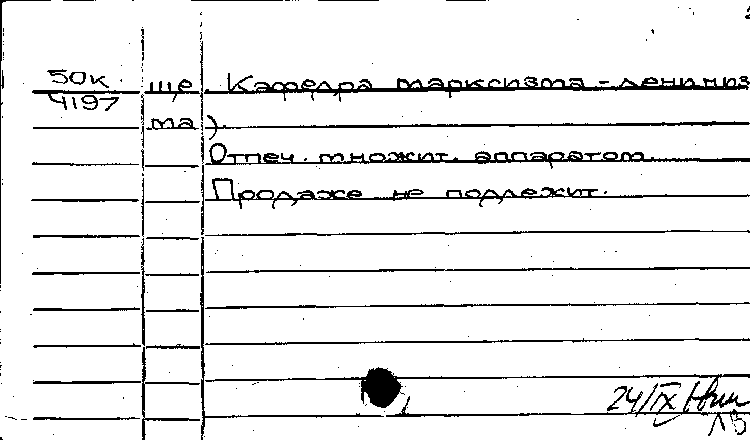 50к ще. Кафедра марксизма-лениниз
4197 ма).
Отпеч. множит. аппаратом.
Продаже не подлежит.
24/IX
ЛВ